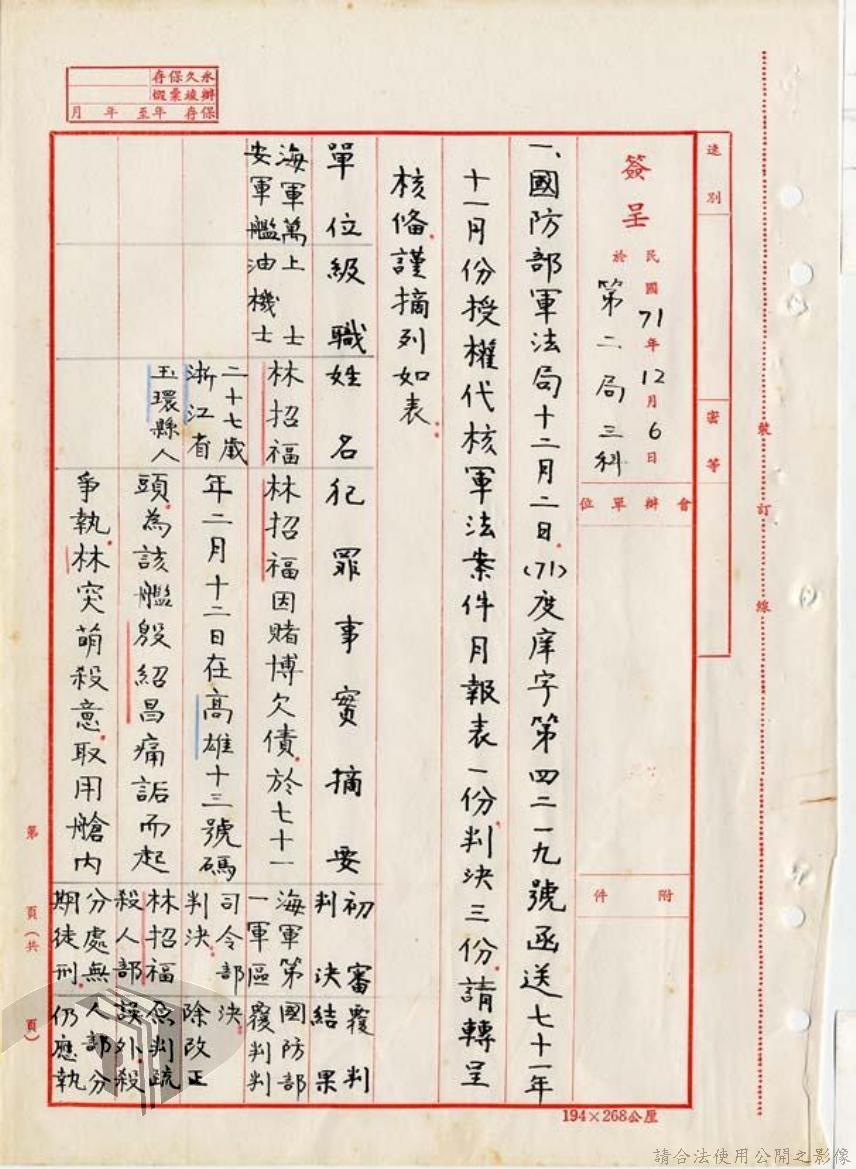 永久保存
辦竣彙檔
保存 年至 年 月
速別
密等
裝訂線
簽呈
民國71年12月6日
於第二局三科
會辦單位
附件
一、國防部軍法局十二月二日(71)度庠字第四二一九號函送七十一年
十一月份授權代核軍法案件月報表一份判決三份,請轉呈
核備。謹摘列如表:
單位級職
姓名
犯罪事實摘要
初審判決
覆判結果
海軍萬安軍艦
上士油機士
林招福
二十七歲
浙江省
玉環縣人
林招福因賭博欠債,於七十一
年二月十二日在高雄十三號碼
頭,為該艦殷紹昌痛詬而起
爭執,林突萌殺意,取用艙內
海軍第
一軍區
司令部
判決。
林招福
殺人部
分處無
期徒刑
國防部
覆判判
決。
除改正
原判疏
誤外,殺
人部分
仍應執
第 頁(共 頁)
194×268公厘
請合法使用公開之影像